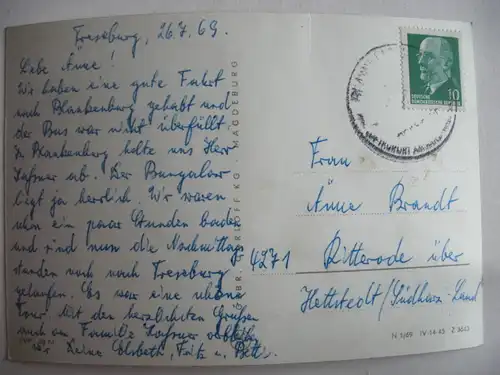 Treseburg, 26.7.69.
Liebe Änne!
Wir haben eine gute Fahrt
nach Blankenburg gehabt und
der Bus war nicht überfüllt.
In Blankenburg holte uns Herr
ab. Der Bungalow
liegt ja herrlich. Wir waren
schon ein paar Stunden baden
und sind nun die Nachmittags
stunden noch nach Treseburg
gelaufen. Es war eine schöne
Tour. Mit den herzlichsten Grüßen
auch an Familie
wir Deine Elsbeth, Fritz u.
KG MAGDEBURG
DEUTSCHE
DEMOKRATISCHE REPUBLIK
10
Frau
Änne Brandt
4271 Ritterode über
Hettstedt/Südharz-Land
IV-14-43